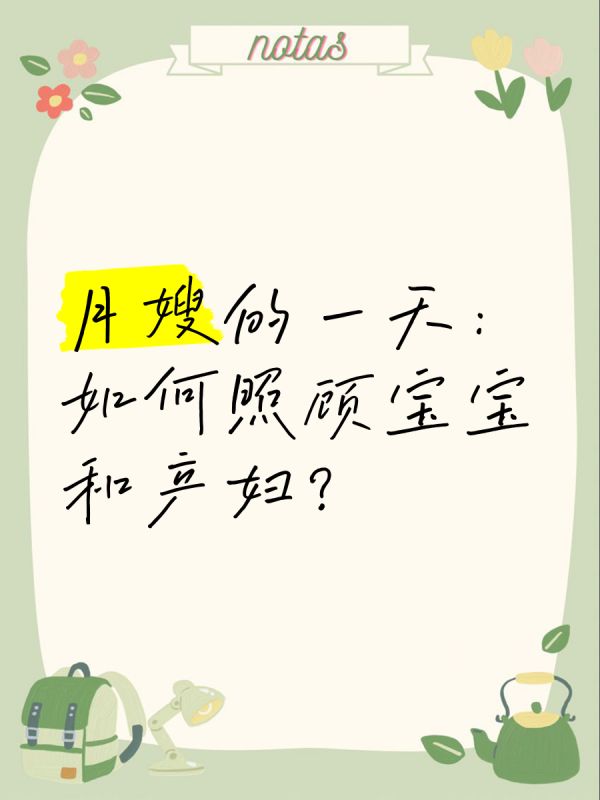 notas
月嫂的一天:
如何照顾宝宝
和产妇?